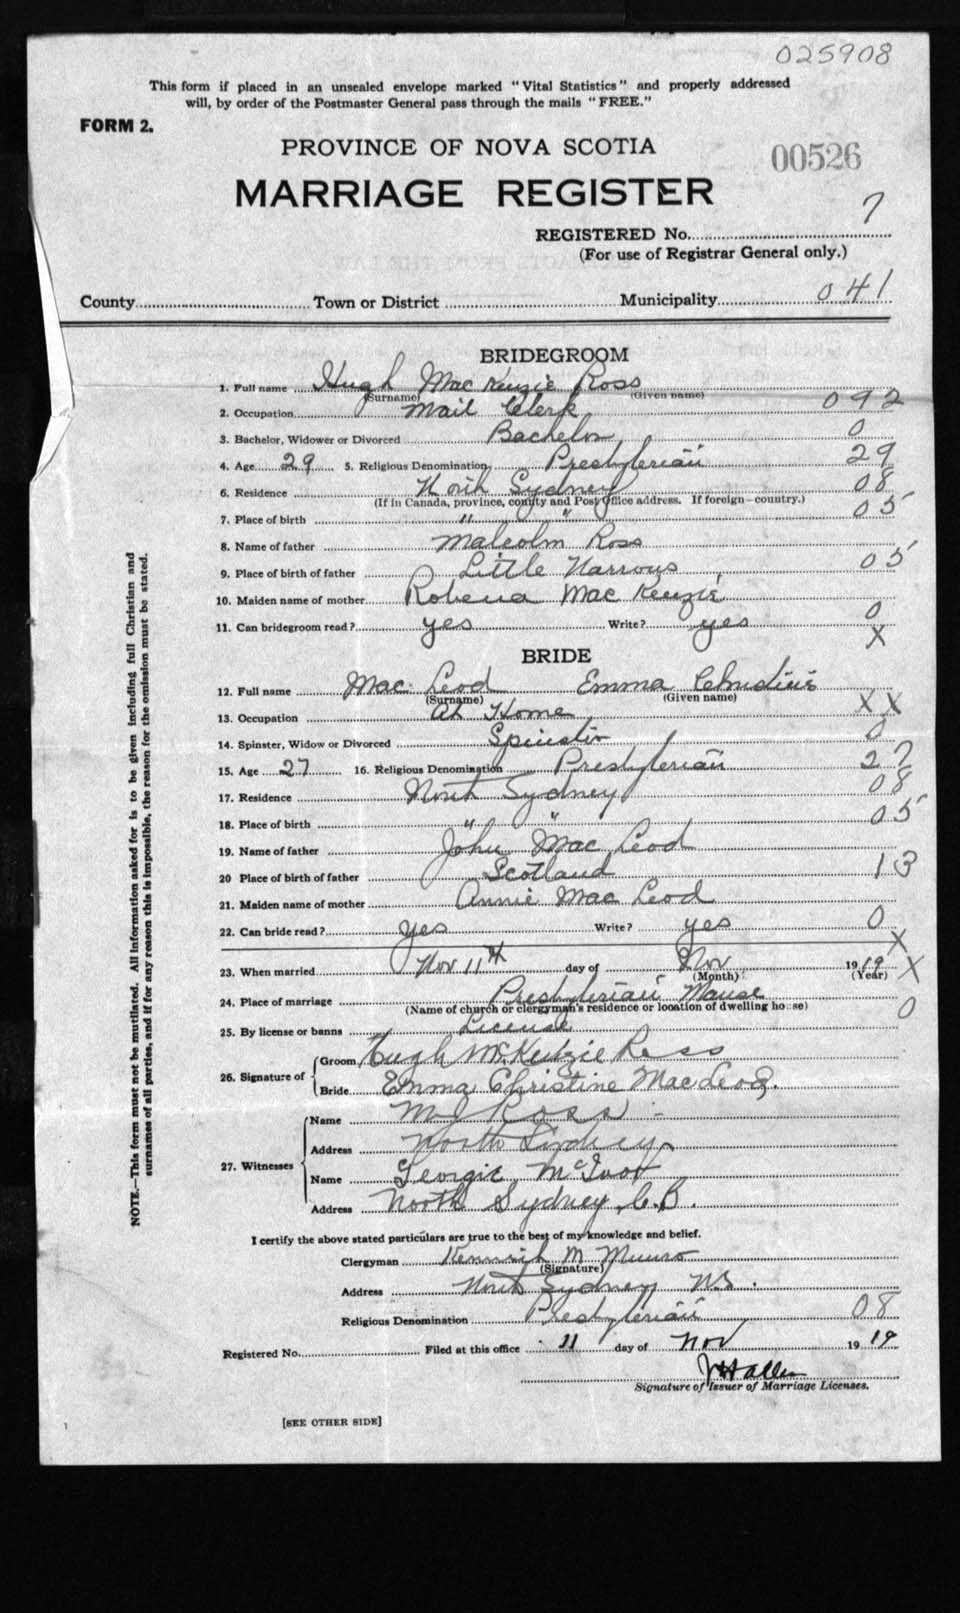 025908
This form if placed in an unsealed envelope marked "Vital Statistics" and properly addressed
will, by order of the Postmaster General pass through the mails "FREE."
FORM 2.
PROVINCE OF NOVA SCOTIA
00526
MARRIAGE REGISTER
REGISTERED No. 7
(For use of Registrar General only.)
County Town or District Municipality 041
BRIDEGROOM
1. Full name Hugh Mac Kenzie Ross
(Surname) (Given name)
2. Occupation Mail Clerk 092
3. Bachelor, Widower or Divorced Bachelor 0
4. Age 29 5. Religious Denomination Presbyterian 29
6. Residence North Sydney 08
(If in Canada, province, county and Post Office address. If foreign—country.)
7. Place of birth " " 05
8. Name of father Malcolm Ross
9. Place of birth of father Little Narrows 05
10. Maiden name of mother Robena Mac Kenzie
11. Can bridegroom read? yes Write? yes 0
X
BRIDE
12. Full name Mac Leod Emma
(Surname) (Given name)
13. Occupation At Home X X
14. Spinster, Widow or Divorced Spinster 0
15. Age 27 16. Religious Denomination Presbyterian 27
17. Residence North Sydney 08
18. Place of birth " " 05
19. Name of father John Mac Leod
20 Place of birth of father Scotland 13
21. Maiden name of mother Annie Mac Leod
22. Can bride read? Yes Write? yes 0
X
23. When married Nov 11th day of Nov 1919 X
(Month) (Year)
24. Place of marriage Presbyterian Manse
(Name of church or clergyman's residence or location of dwelling house) 0
25. By license or banns License
26. Signature of Groom Hugh McKenzie Ross
Bride Emma Christine MacLeod.
27. Witnesses Name M J Ross
Address North Sydney
Name Georgie
Address North Sydney, C.B.
I certify the above stated particulars are true to the best of my knowledge and belief.
Clergyman Kenneth M Munro
(Signature)
Address North Sydney N.S.
Religious Denomination Presbyterian 08
Registered No. Filed at this office 11 day of Nov 1919
Signature of Issuer of Marriage Licenses.
[SEE OTHER SIDE]
NOTE.—This form must not be mutilated. All information asked for is to be given including full Christian and
surnames of all parties, and if for any reason this is impossible, the reason for the omission must be stated.